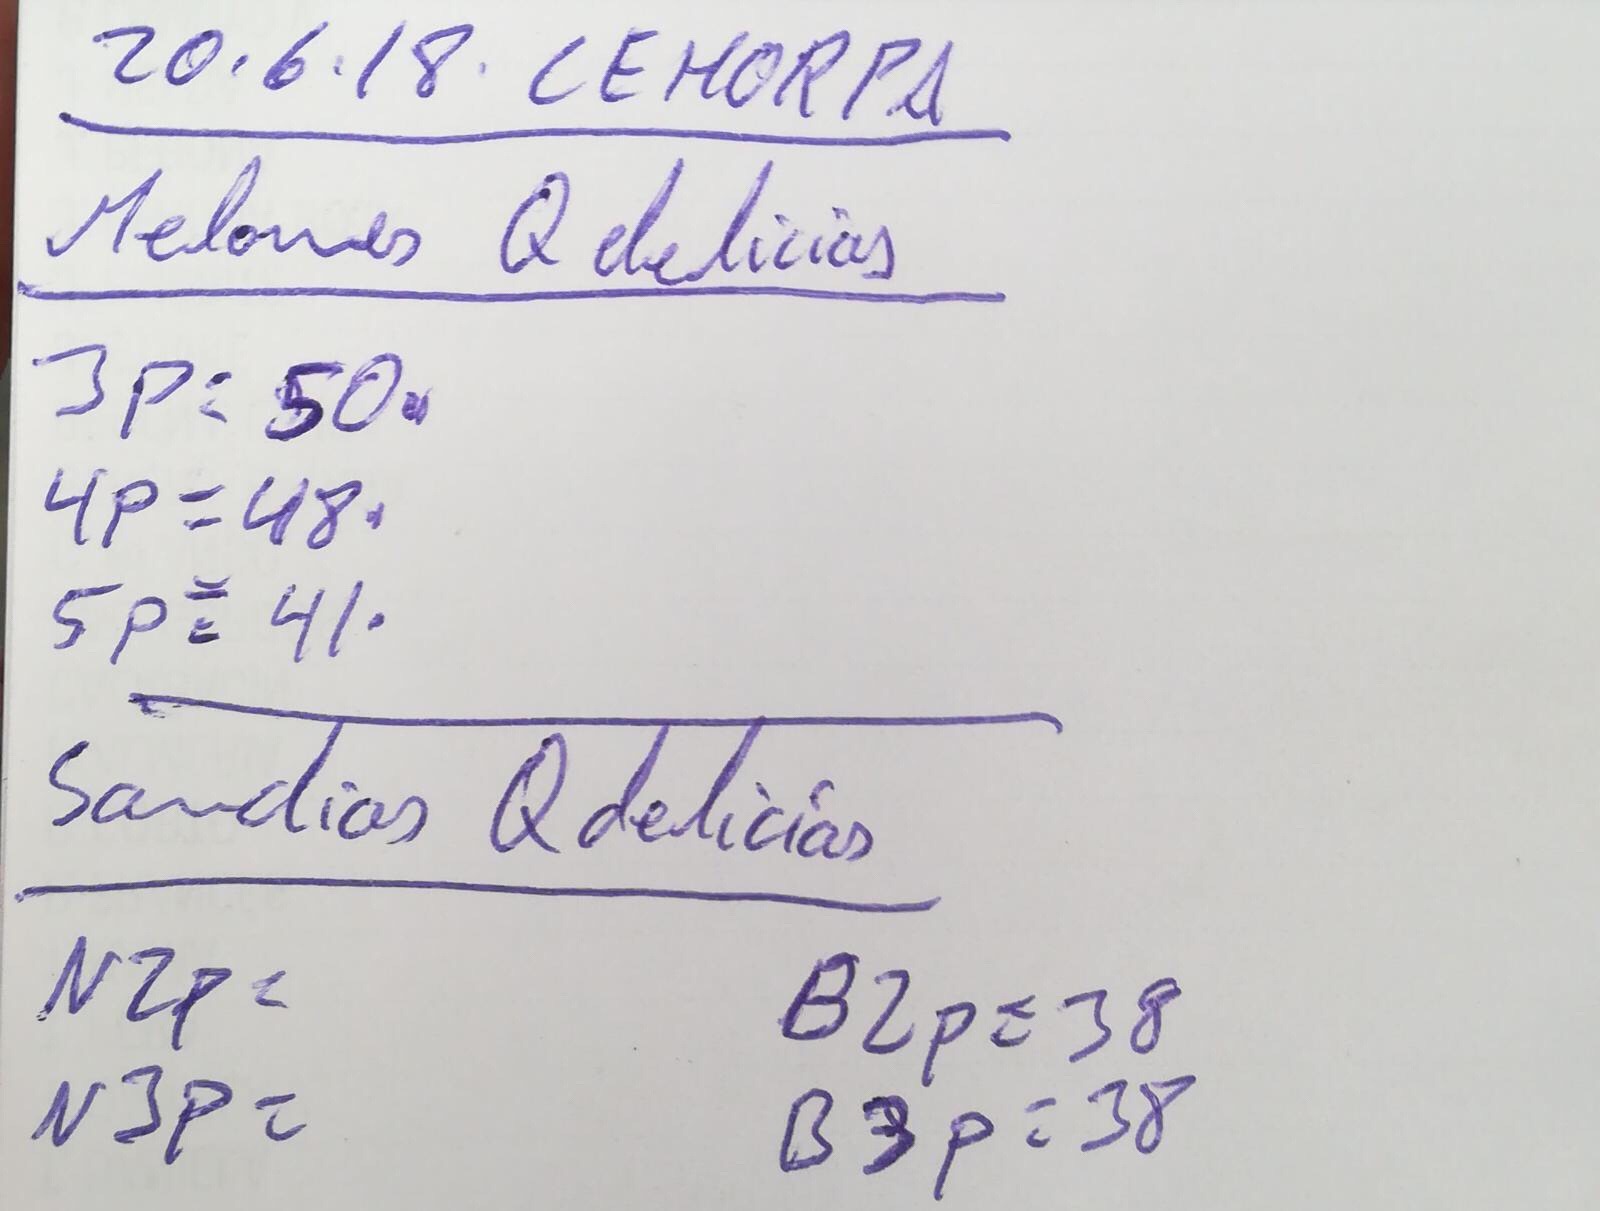 20.6.18. CEMORPA
Melones Q delicias
3p= 50.
4p=48.
5p= 41.
Sandias Q delicias
N2p=
B2p=38
N3p=
B3p=38